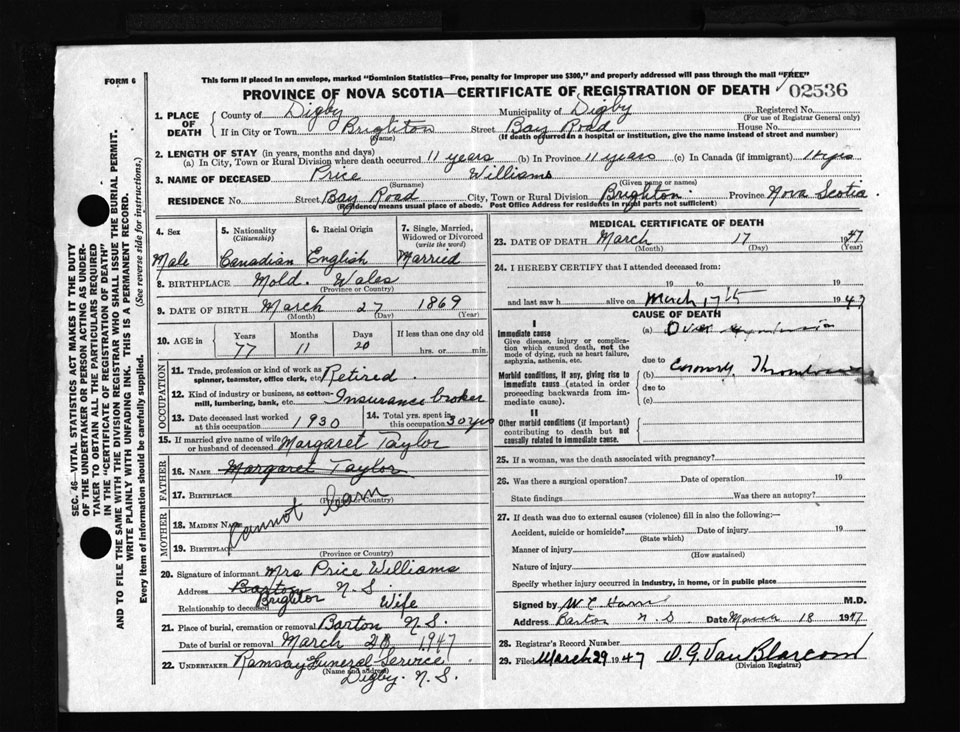 FORM 6
This form if placed in an envelope, marked "Dominion Statistics—Free, penalty for improper use $300," and properly addressed will pass through the mail "FREE"
PROVINCE OF NOVA SCOTIA—CERTIFICATE OF REGISTRATION OF DEATH 02536
1. PLACE OF DEATH { County of Digby Municipality of Digby Registered No.
(For use of Registrar General only)
If in City or Town Brighton Street Bay Road House No.
(Name) (If death occurred in a hospital or institution, give the name instead of street and number)
2. LENGTH OF STAY (in years, months and days)
(a) In City, Town or Rural Division where death occurred 11 years (b) In Province 11 years (c) In Canada (if immigrant)
3. NAME OF DECEASED Price Williams
(Surname) (Given name or names)
RESIDENCE No. Street Bay Road City, Town or Rural Division Brighton Province Nova Scotia.
(Residence means usual place of abode. Post Office Address for residents in rural parts not sufficient)
4. Sex 5. Nationality (Citizenship) 6. Racial Origin 7. Single, Married, Widowed or Divorced (write the word)
Male Canadian English Married
8. BIRTHPLACE Mold. Wales
(Province or Country)
9. DATE OF BIRTH March 27 1869
(Month) (Day) (Year)
10. AGE in { Years Months Days If less than one day old
77 11 20 hrs. or min.
OCCUPATION
11. Trade, profession or kind of work as spinner, teamster, office clerk, etc. Retired.
12. Kind of industry or business, as cotton-mill, lumbering, bank, etc. Insurance broker
13. Date deceased last worked at this occupation 1930 14. Total yrs. spent in this occupation 30 yrs
15. If married give name of wife or husband of deceased Margaret Taylor
FATHER
16. NAME Margaret Taylor
17. BIRTHPLACE
(Province or Country)
Cannot learn
MOTHER
18. MAIDEN NAME
19. BIRTHPLACE
(Province or Country)
20. Signature of informant Mrs Price Williams
Address Barton N S
Brighton
Relationship to deceased Wife
21. Place of burial, cremation or removal Barton N.S.
Date of burial or removal March 20 1947
22. UNDERTAKER Ramsay Funeral Service
(Name and address)
Digby. N. S.
MEDICAL CERTIFICATE OF DEATH
23. DATE OF DEATH March 17 1947
(Month) (Day) (Year)
24. I HEREBY CERTIFY that I attended deceased from:
19 to 19
and last saw h alive on March 17th 1947
CAUSE OF DEATH
I
Immediate cause (a)
Give disease, injury or complication which caused death, not the mode of dying, such as heart failure, asphyxia, asthenia, etc.
due to
Morbid conditions, if any, giving rise to immediate cause (stated in order proceeding backwards from immediate cause). (b) Coronary Thrombosis
due to
(c)
II
Other morbid conditions (if important) contributing to death but not causally related to immediate cause.
25. If a woman, was the death associated with pregnancy?
26. Was there a surgical operation? Date of operation 19
State findings Was there an autopsy?
27. If death was due to external causes (violence) fill in also the following:—
Accident, suicide or homicide? Date of injury 19
(State which)
Manner of injury
(How sustained)
Nature of injury
Specify whether injury occurred in industry, in home, or in public place
Signed by M.D.
Address Barton N. S Date March 18 1947
28. Registrar's Record Number
29. Filed March 29 1947 D. G. Van Blarcom
(Division Registrar)
SEC. 46—VITAL STATISTICS ACT MAKES IT THE DUTY
OF THE UNDERTAKER OR PERSON ACTING AS UNDER-
TAKER TO OBTAIN ALL THE PARTICULARS REQUIRED
IN THE "CERTIFICATE OF REGISTRATION OF DEATH"
AND TO FILE THE SAME WITH THE DIVISION REGISTRAR WHO SHALL ISSUE THE BURIAL PERMIT.
WRITE PLAINLY WITH UNFADING INK. THIS IS A PERMANENT RECORD.
Every item of Information should be carefully supplied. (See reverse side for instructions.)